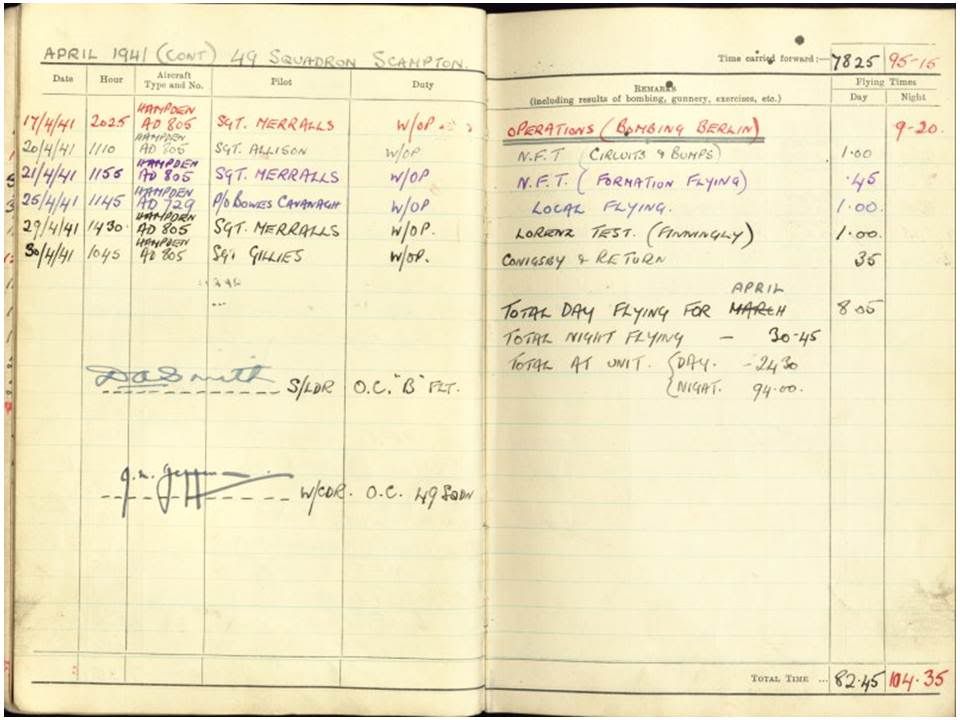 APRIL 1941 (CONT) 49 SQUADRON SCAMPTON.
Date Hour Aircraft Type and No. Pilot Duty
17/4/41 2025 HAMPDEN AD 805 SGT. MERRALLS W/OP.
20/4/41 1110 HAMPDEN AD 805 SGT. ALLISON W/OP
21/4/41 1155 HAMPDEN AD 805 SGT. MERRALLS W/OP
25/4/41 1145 HAMPDEN AD 729 P/O BOWES CAVANAGH W/OP
29/4/41 1430 HAMPDEN AD 805 SGT. MERRALLS W/OP.
30/4/41 1045 HAMPDEN AD 805 SGT GILLIES W/OP.
DASmith S/LDR O.C. "B" FLT.
W/CDR. O.C. 49 SQDN
Time carried forward:— 7825 95-15
Remarks
(including results of bombing, gunnery, exercises, etc.)
Flying Times
Day Night
OPERATIONS (BOMBING BERLIN) 9-20.
N.F.T (CIRCUITS & BUMPS) 1.00
N.F.T. (FORMATION FLYING) .45
LOCAL FLYING. 1.00
LORENZ TEST. (FINNINGLY) 1.00
CONIGSBY & RETURN 35
APRIL
TOTAL DAY FLYING FOR MARCH 8 05
TOTAL NIGHT FLYING — 30-45
TOTAL AT UNIT. {DAY. - 24 30
{NIGHT. 94.00.
Total Time ... 82.45 104.35